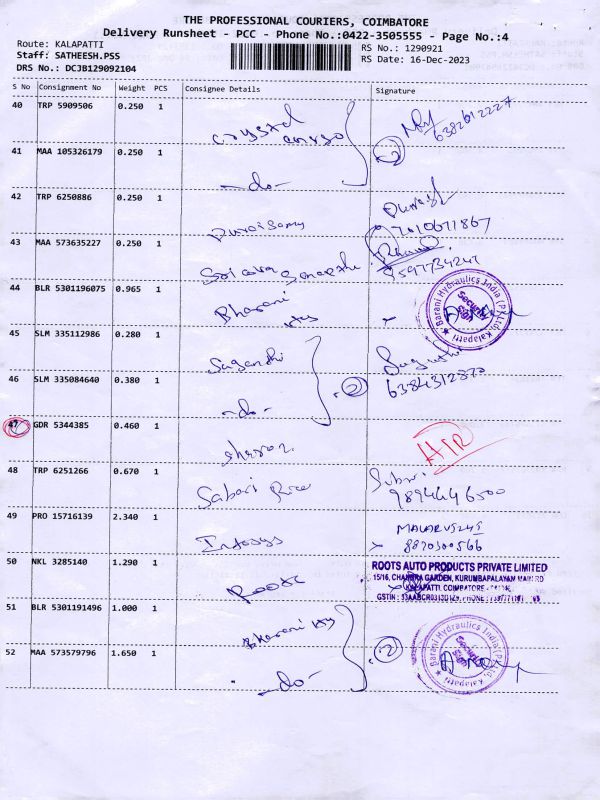 THE PROFESSIONAL COURIERS, COIMBATORE
Delivery Runsheet - PCC - Phone No.:0422-3505555 - Page No.:4
Route: KALAPATTI
Staff: SATHEESH.PSS
DRS No.: DCJB129092104
RS No.: 1290921
RS Date: 16-Dec-2023
S No Consignment No Weight PCS Consignee Details Signature
40 TRP 5909506 0.250 1 Crystal
6382612227
2
41 MAA 105326179 0.250 1 -do-
42 TRP 6250886 0.250 1 Duraisamy
7010671867
43 MAA 573635227 0.250 1 Sri
44 BLR 5301196075 0.965 1 Bharani Hys
Barani Hydraulics India (P) Ltd, Kalapatti
Security Sign
45 SLM 335112986 0.280 1 Sugandhi
6384312870
2
46 SLM 335084640 0.380 1 -do-
47 GDR 5344385 0.460 1
48 TRP 6251266 0.670 1 Sabari
9894646500
49 PRO 15716139 2.340 1 Infosys
8870300566
50 NKL 3285140 1.290 1 Roots
ROOTS AUTO PRODUCTS PRIVATE LIMITED
15/16, CHANDRA GARDEN, KURUMBAPALAYAM MAIN RD
KALAPATTI, COIMBATORE
51 BLR 5301191496 1.000 1 Bharani Hys
2
Barani Hydraulics India (P) Ltd, Kalapatti
Security Sign
52 MAA 573579796 1.650 1 -do-